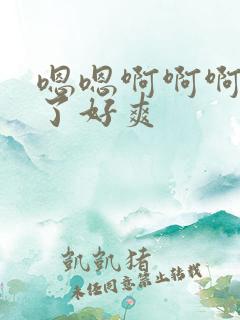 嗯嗯啊啊啊
了好爽
凯凯猪
未经同意禁止转载